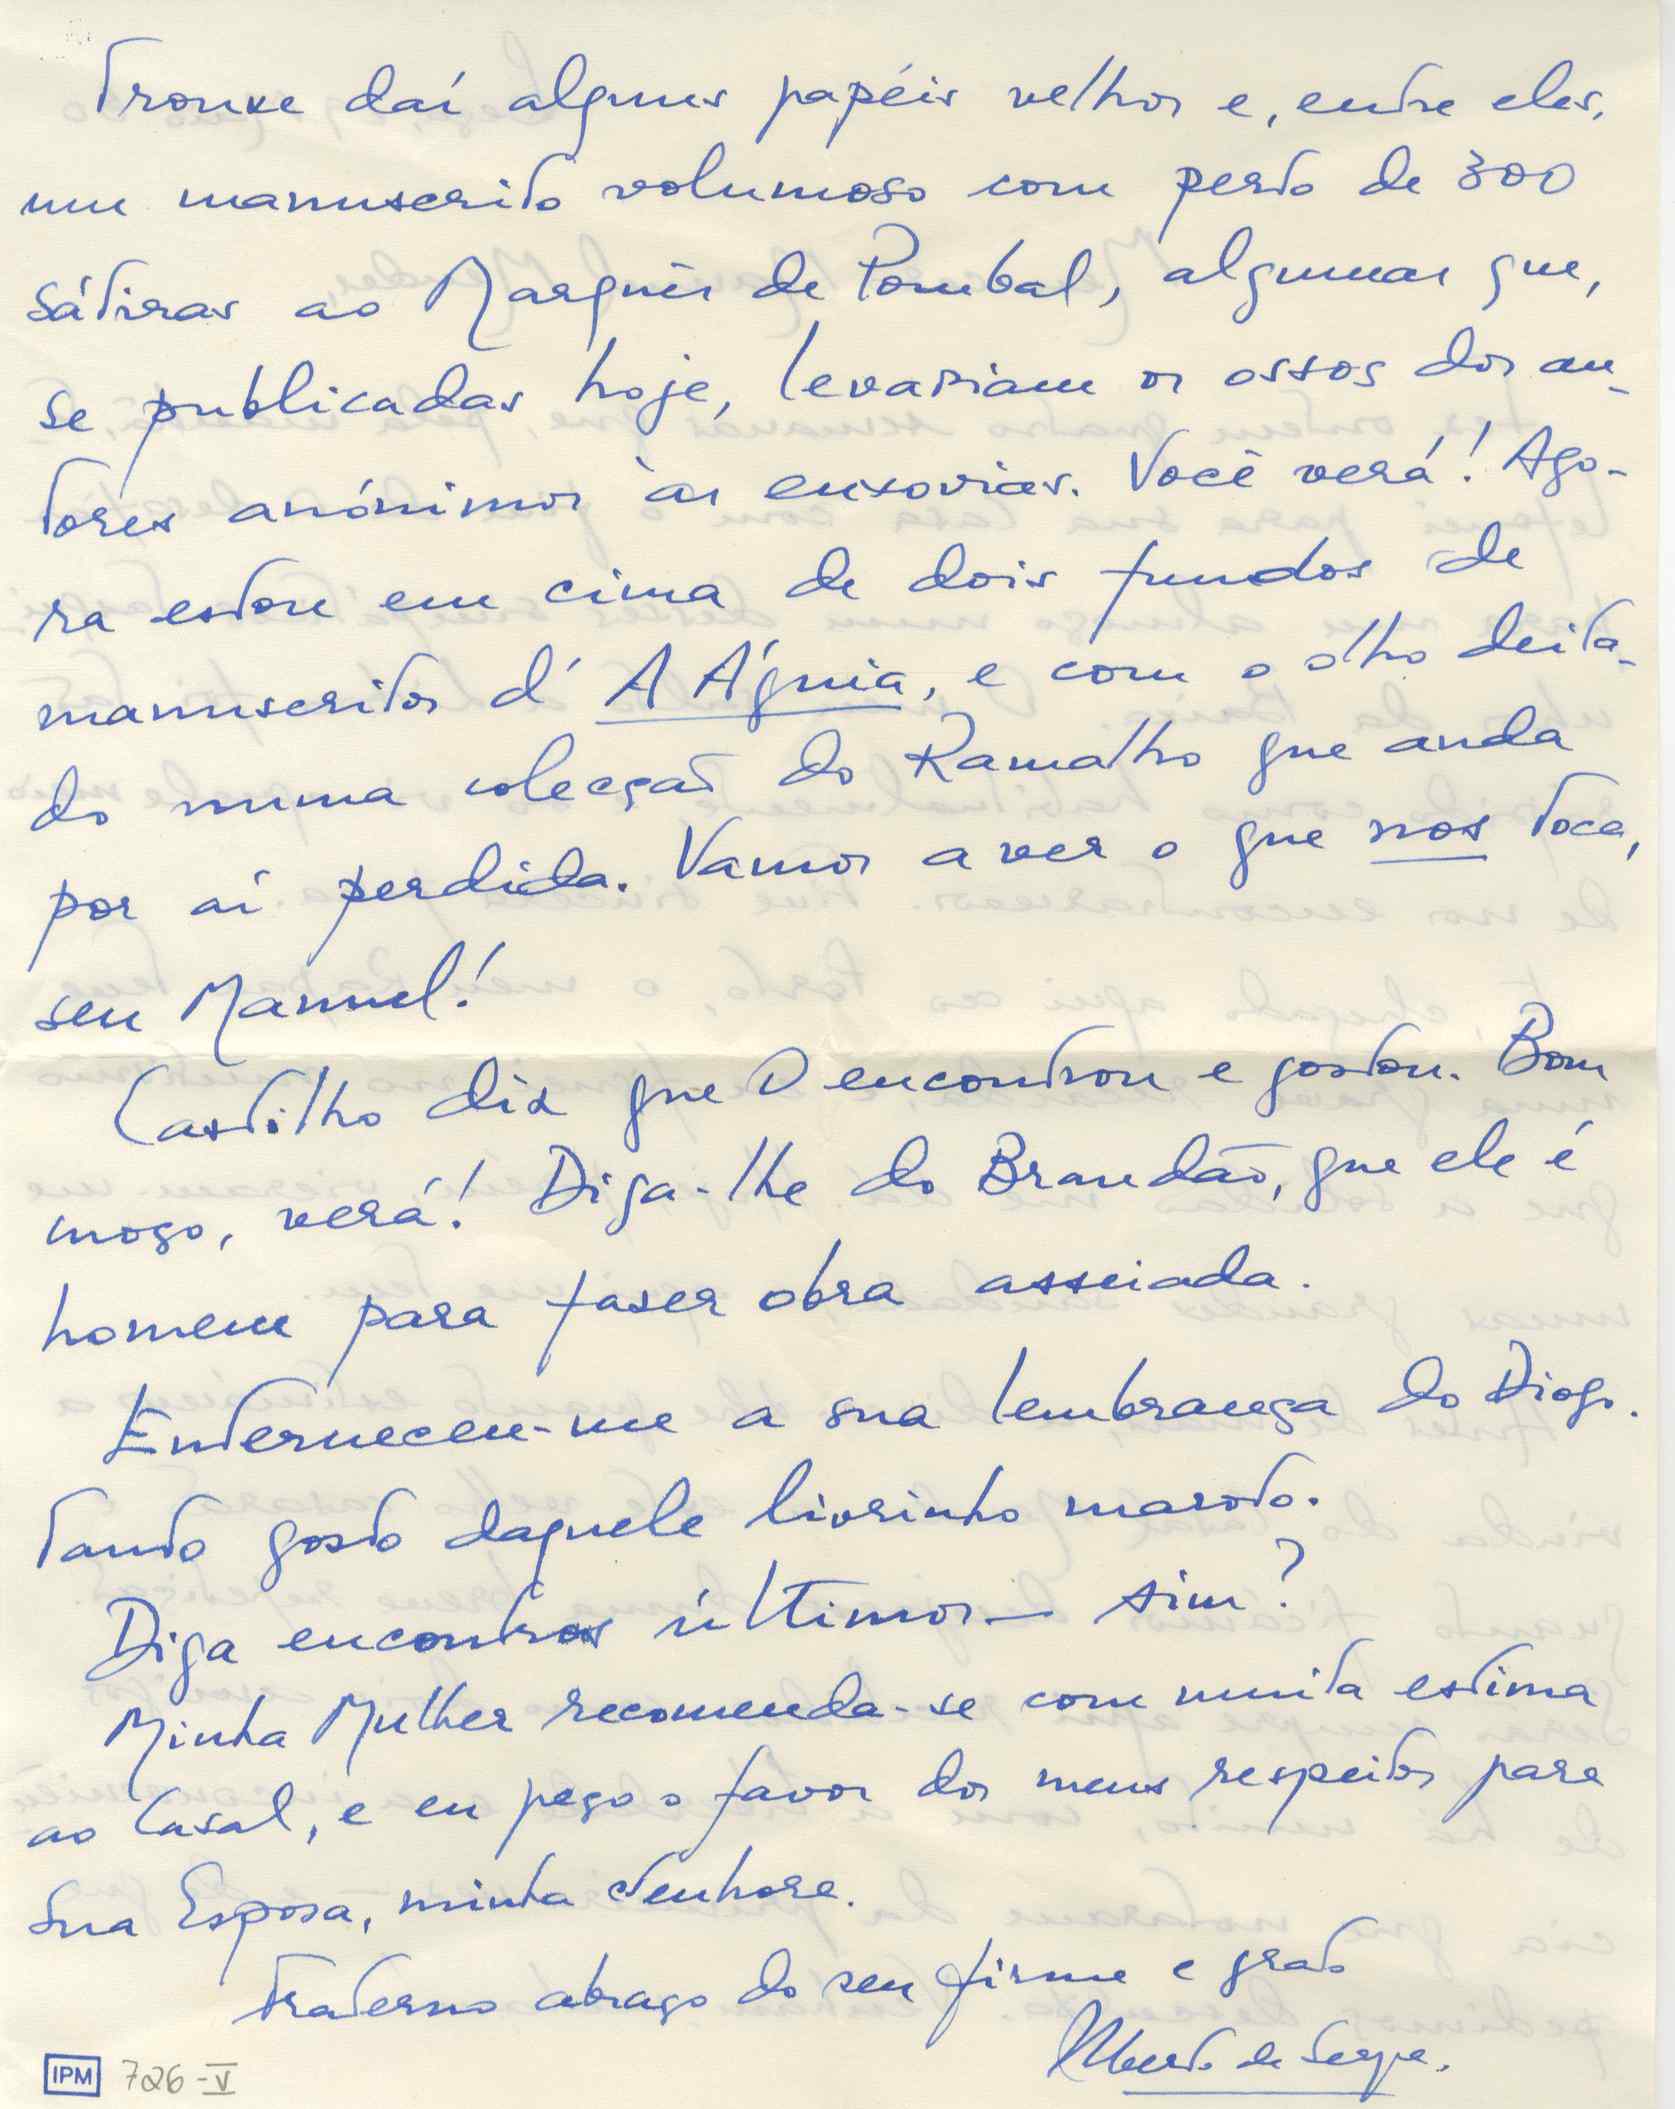 Trouxe daí alguns papéis velhos e, entre eles,
um manuscrito volumoso com perto de 300
sátiras ao Marquês de Pombal, algumas que,
se publicadas hoje, levariam os ossos dos au-
tores anónimos às enxovias. Você verá! Ago-
ra estou em cima de dois fundos de
manuscritos d' A Águia, e com o olho deita-
do numa colecção do Ramalho que anda
por aí perdida. Vamos a ver o que nos toca,
seu Manuel!
Castilho diz que O encontrou e gostou. Bom
moço, verá! Diga-lhe do Brandão, que ele é
homem para fazer obra asseiada.
Enterneceu-me a sua lembrança do Diogo.
Tanto gosto daquele livrinho maroto.
Diga encontros últimos — sim?
Minha Mulher recomenda-se com muita estima
ao Casal, e eu peço o favor dos meus respeitos para
Sua Esposa, minha Senhora.
Fraterno abraço do seu firme e grato
Alberto de Serpa.
IPM 726-V